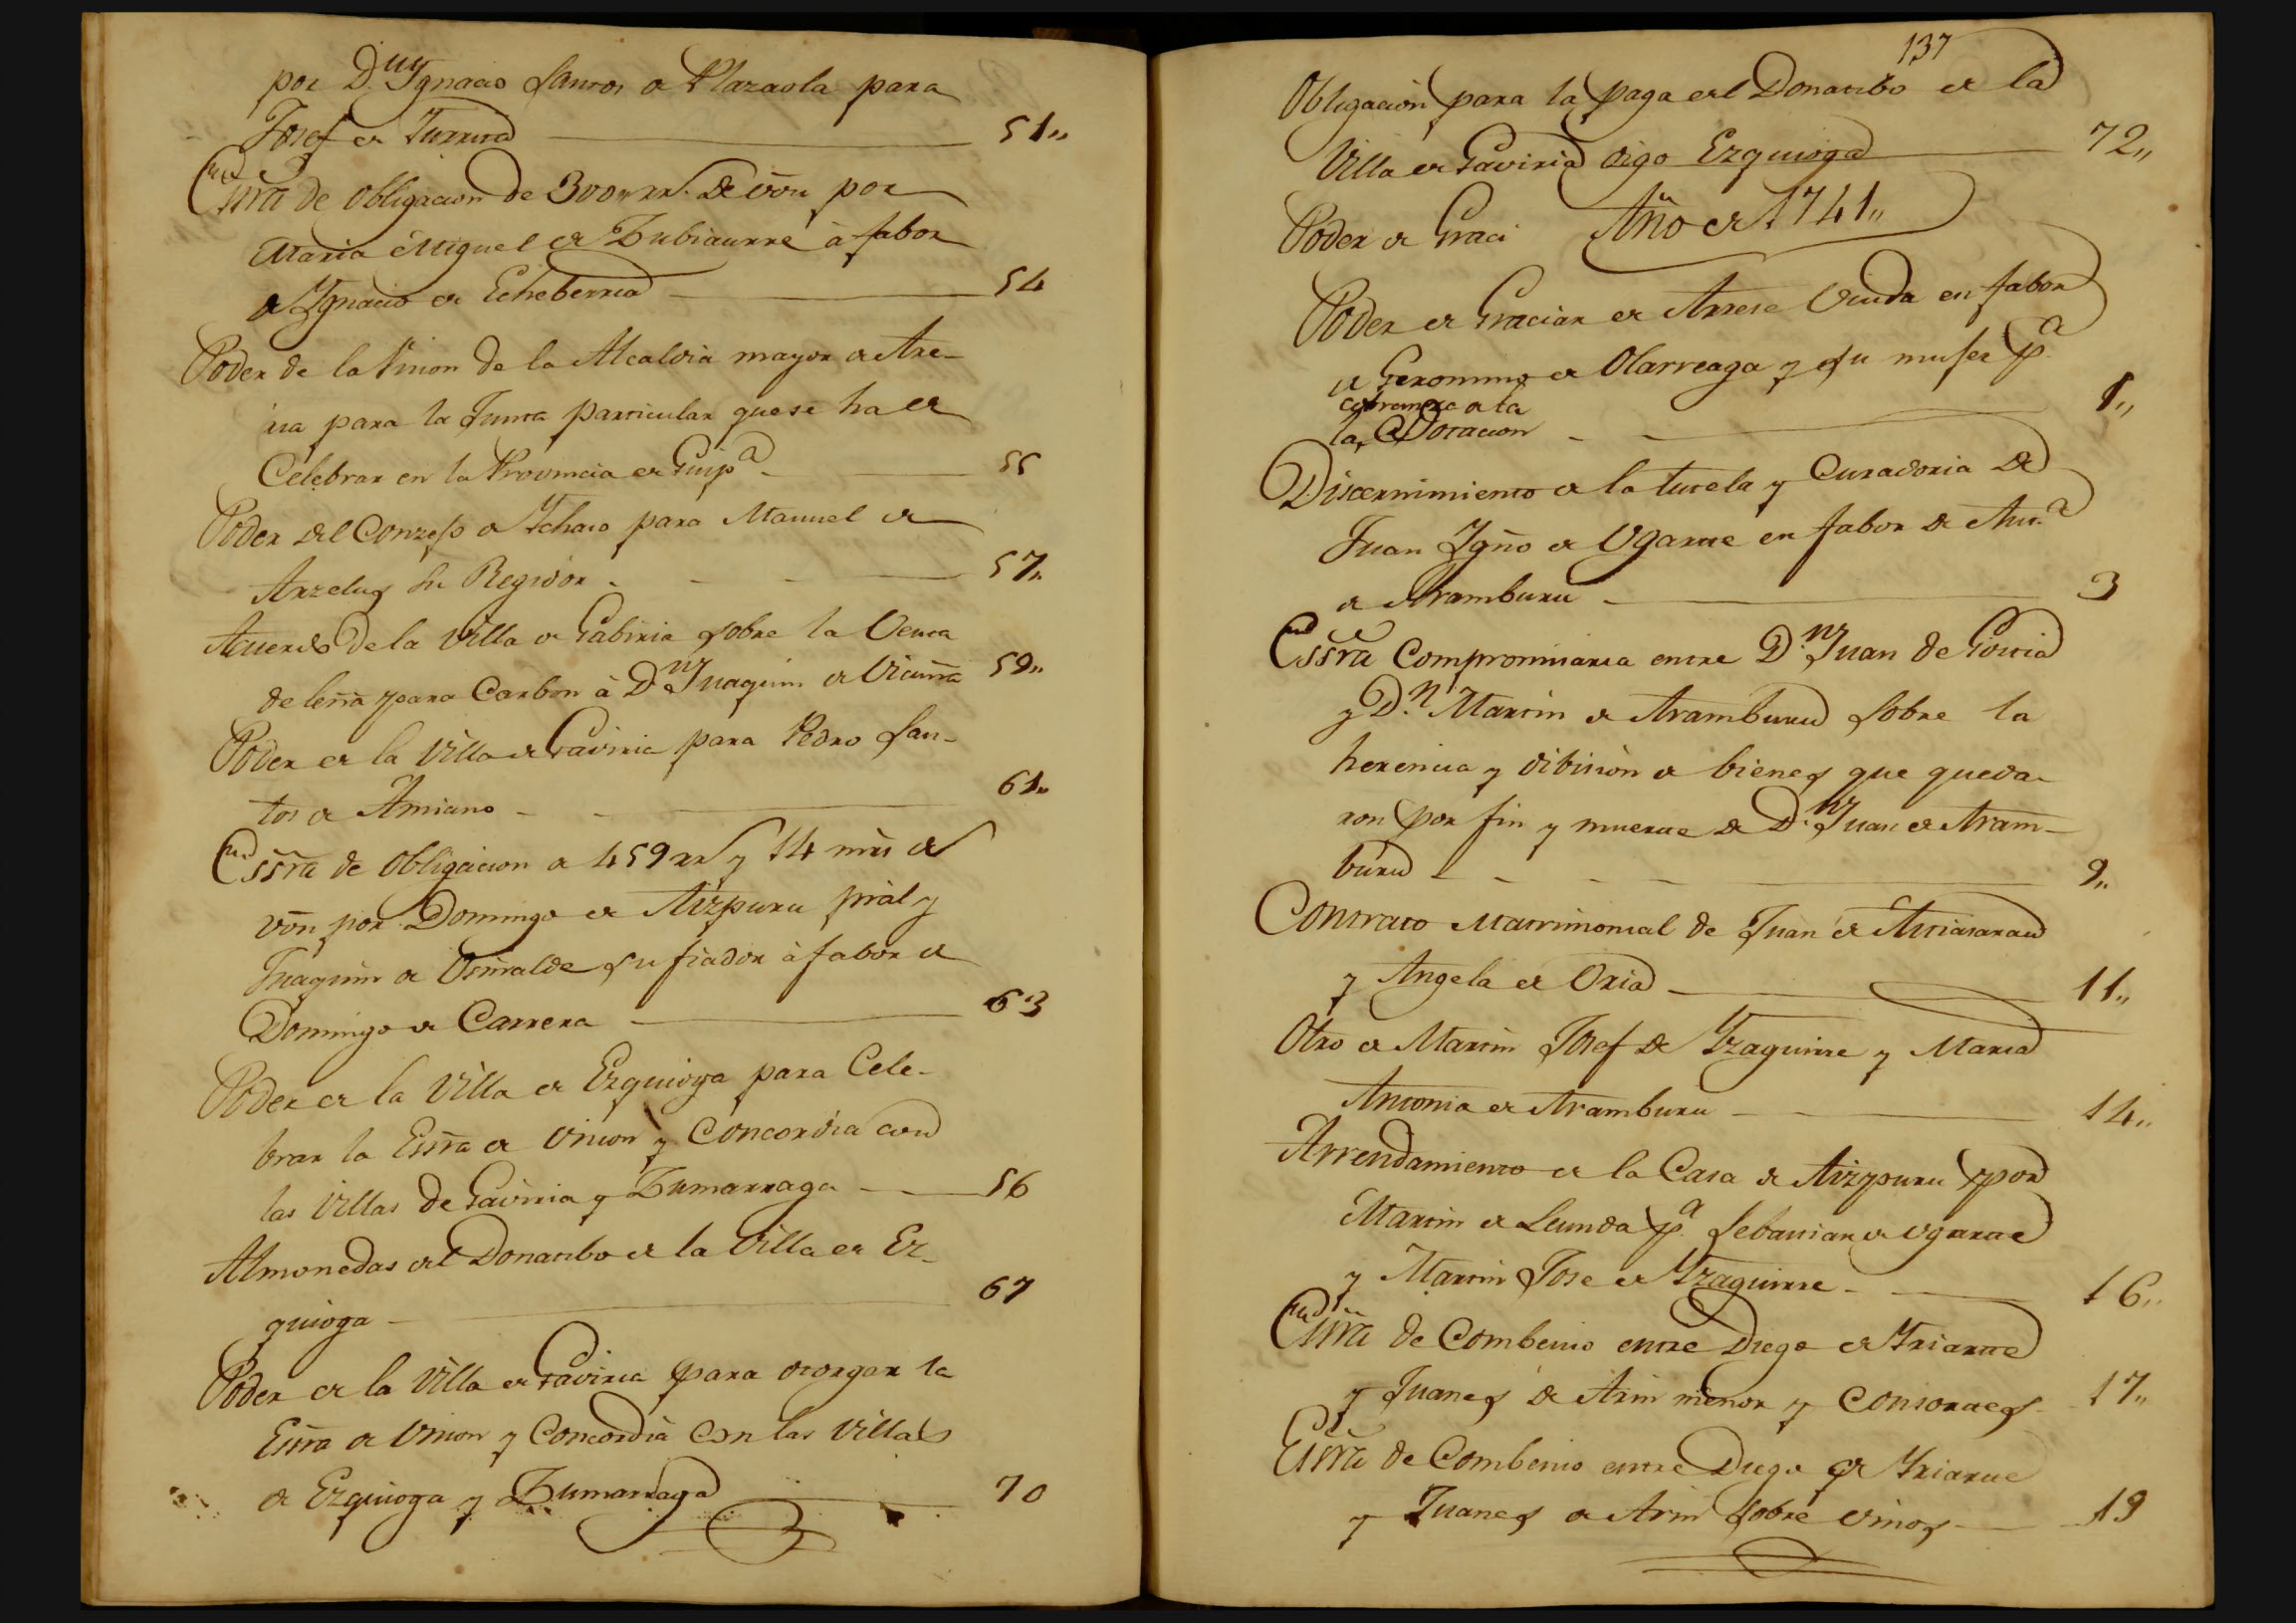 por D.ⁿ Ygnacio Santos de Plazaola para
Josef de Turrita 51,,
Essrã de obligacion de 300,, rr.s De vōn por
Maria Miguel de Zubiaurre à fabor
de Ygnacio de Echeberria 54
Poder de la Vnion de la Alcaldia mayor de Are-
ria para la Junta particular que se ha de
Celebrar en la Provincia de Guip.ª 55
Poder del Conzejo de Ychaso para Manuel de
Arzelus su Regidor 57,,
Acuerdo de la Villa de Gabiria sobre la Venta
de leña para Carbon à D.ⁿ Juaquin de Vicuña 59,,
Poder de la Villa de Gaviria para Pedro San-
tos de Amiano 61,,
Essrã de Obligacion de 459 rr.s y 14 mrs de
vōn por Domingo de Aizpuru prãl y
Juaquin de su fiador à fabor de
Domingo de Carrera 63
Poder de la Villa de Ezquioga para Cele-
brar la Essrã de Vnion y Concordia con
las Villas de Gaviria y Zumarraga 56
Almonedas del Donatibo de la Villa de Ez-
quioga 67
Poder de la Villa de Gaviria para otorgar la
Essrã de Vnion y Concordia con las Villas
de Ezquioga y Zumarraga 70
137
Obligacion para la paga del Donatibo de la
Villa de Gaviria digo Ezquioga 72,,
Poder de Graci Año de 1741,,
Poder de Gracian de Arrese Viuda en fabor
de Geronimo de Olarreaga y su mujer p.ª
cobranza de la
la Dotacion 1,,
Discernimiento de la tutela y Curadoria de
Juan Ygño de Vgarte en fabor de Ant.º
de Aramburu 3
Essrã Compromisaria entre D.ⁿ Juan de Goitia
y D.ⁿ Martin de Aramburu sobre la
herencia y dibision de bienes que queda-
ron por fin y muerte de D.ⁿ Juan de Aram-
buru 9,,
Contrato Matrimonial de Juan de
y Angela de Oria 11,,
Otro de Martin Josef de Yzaguirre y Maria
Antonia de Aramburu 14,,
Arrendamiento de la Casa de Aizpuru por
Martin de Leunda p.ª Sebastian de Vgarte
y Martin Jose de Yzaguirre 16,,
Essrã de Combenio entre Diego de Yriarte
y Juanes de Arin menor y Consortes 17,,
Essrã de Combenio entre Diego de Yriarte
y Juanes de Arin sobre vinos 19